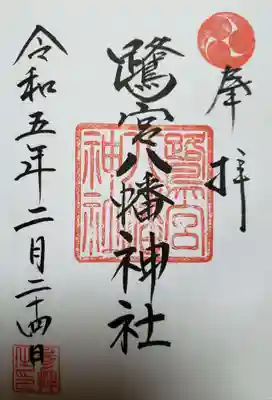 奉拝
鷺宮八幡神社
鷺宮八幡神社
令和五年二月二十四日